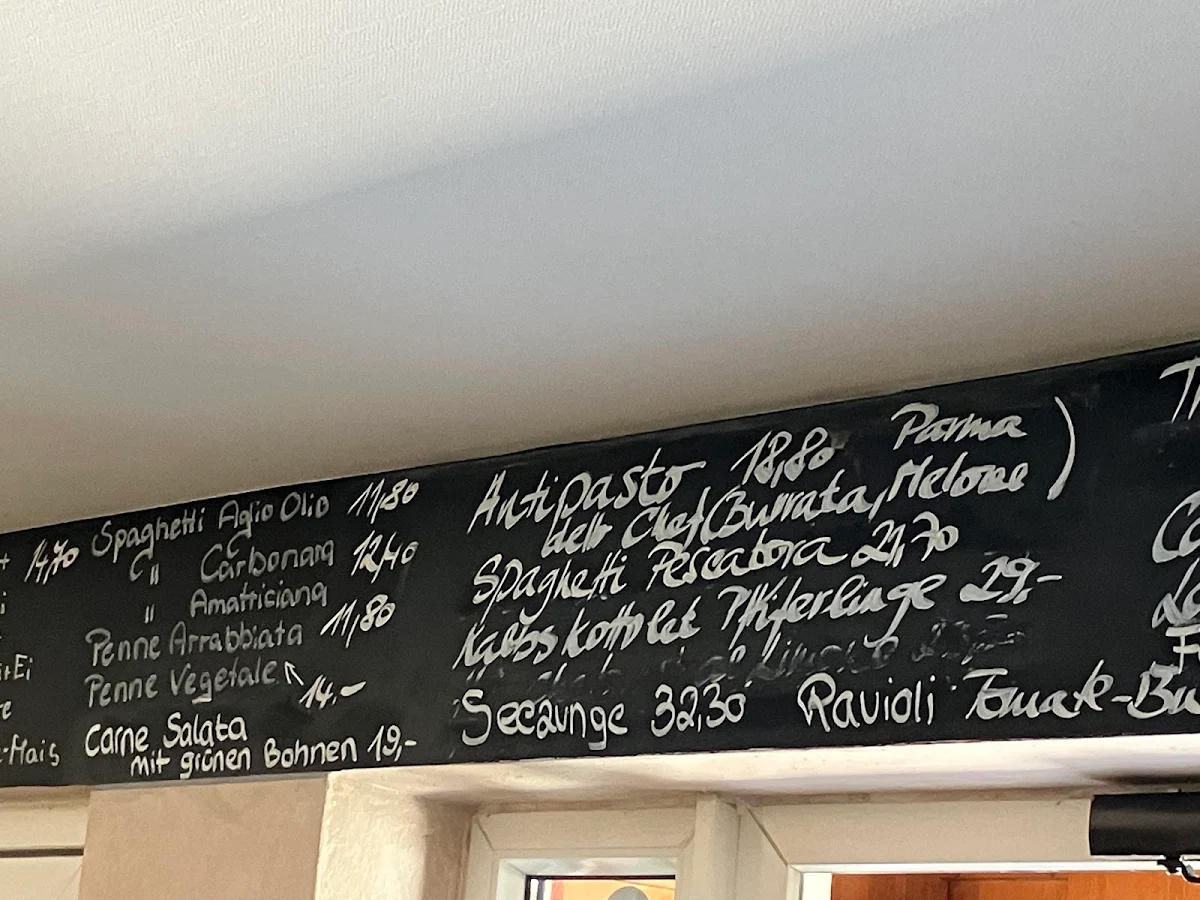 14,70
i
+Ei
e
-Mais
Spaghetti Aglio Olio 11,80
" Carbonara 12,40
" Amatriciana
Penne Arrabbiata 11,80
Penne Vegetale 14.-
Carne Salata
mit grünen Bohnen 19,-
Antipasto 18,80 Parma
dello Chef (Burrata, Melone)
Spaghetti Pescatora 21,70
Kalbskottolet Pfifferlinge 29,-
Seezunge 32,30 Ravioli Tomate-Bu